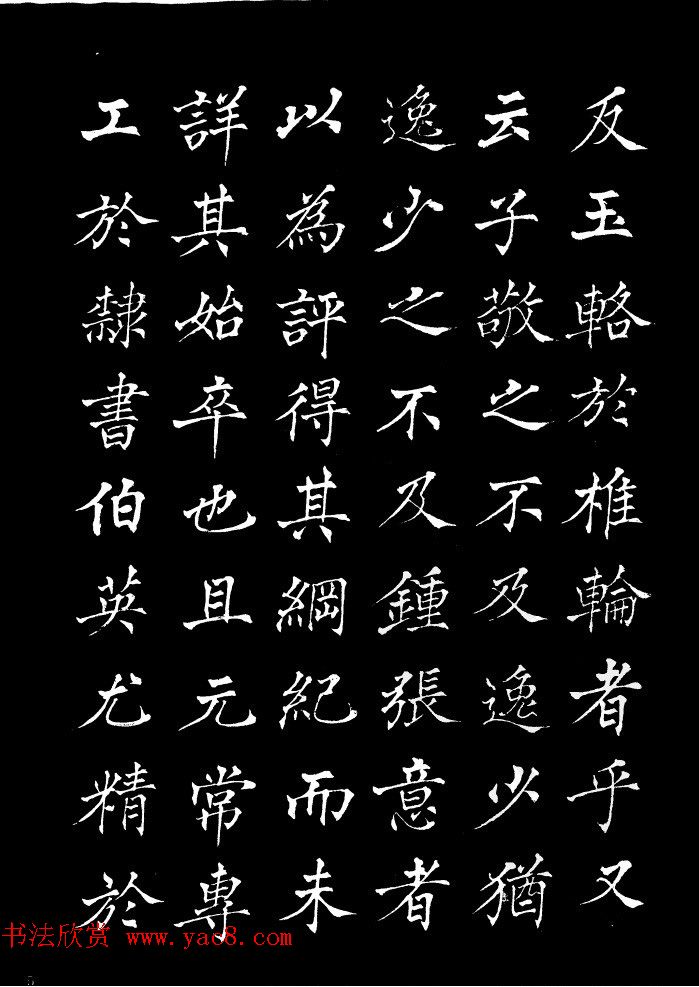 反玉輅於椎輪者乎又
云子敬之不及逸少猶
逸少之不及鍾張意者
以為評得其綱紀而未
詳其始卒也且元常專
工於隸書伯英尤精於
书法欣赏 www.yac8.com
5